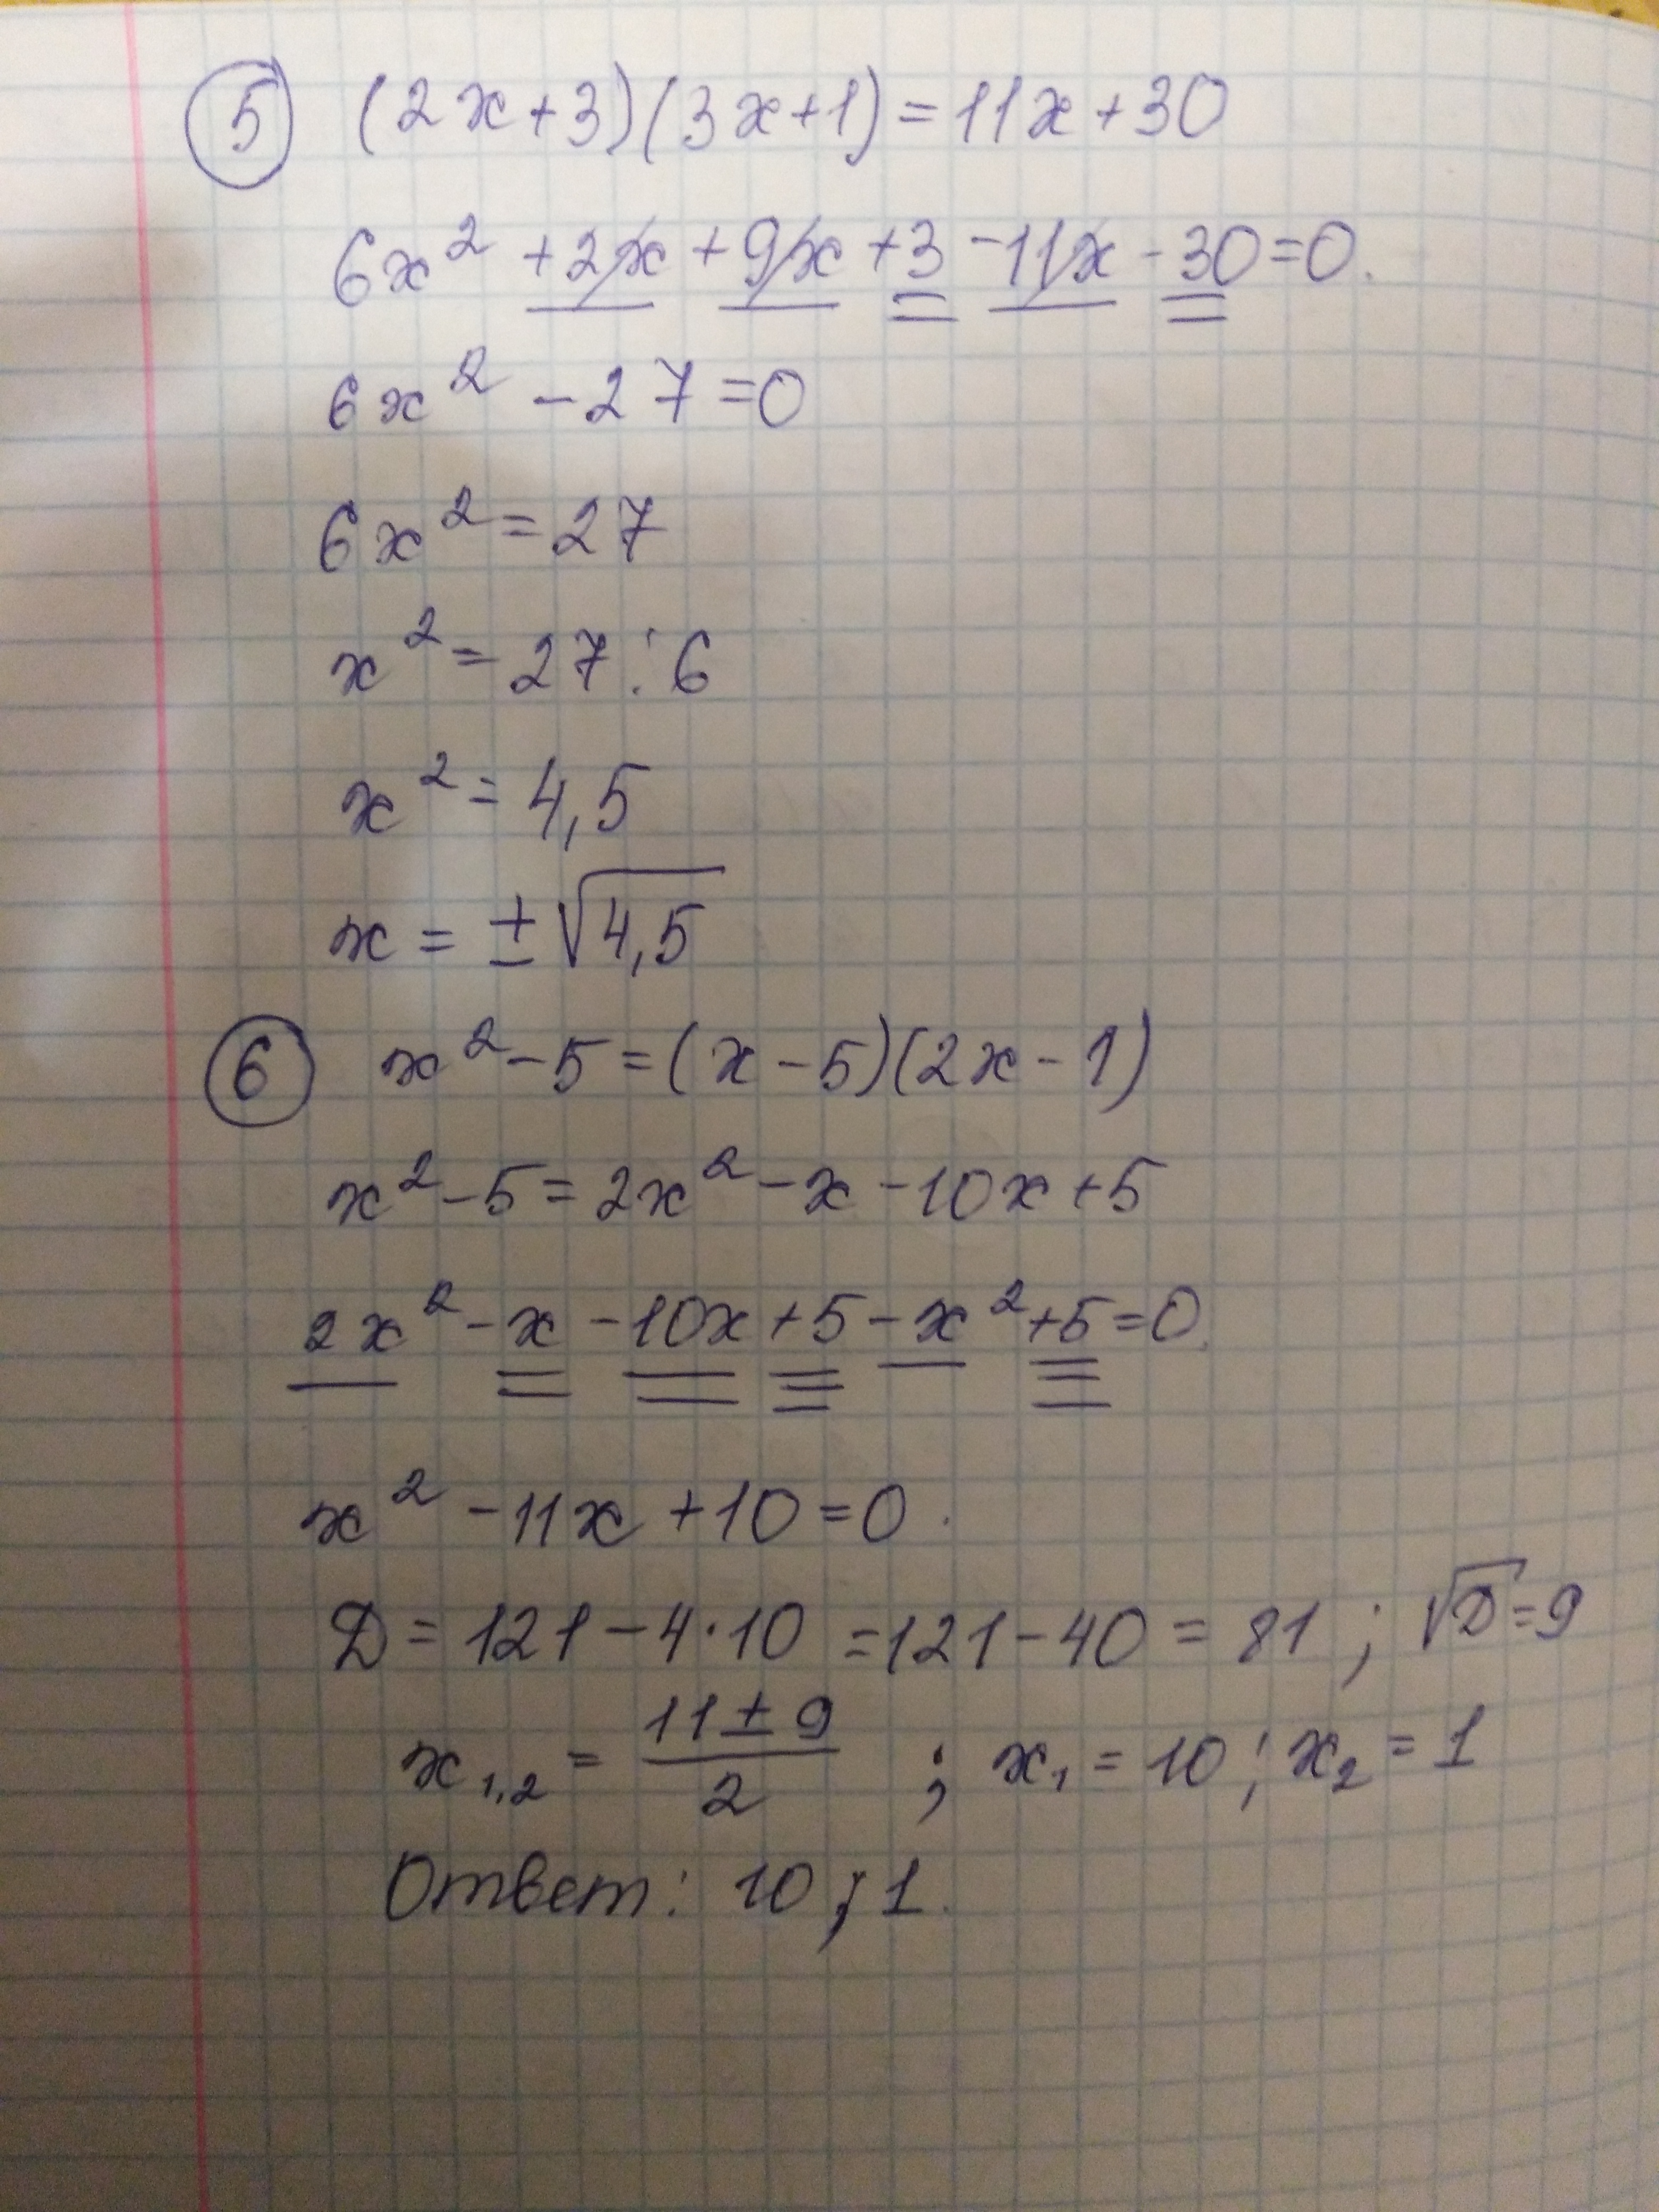 5 (2x+3)(3x+1)=11x+30
6x² +2x +9x +3 -11x -30=0.
6x² -27=0
6x²=27
x²=27:6
x²=4,5
x=±√4,5
6 x²-5=(x-5)(2x-1)
x²-5=2x²-x-10x+5
2x²-x-10x+5-x²+5=0.
x²-11x+10=0.
D=121-4·10=121-40=81; √D=9
x₁,₂=(11±9)/2; x₁=10; x₂=1
Ответ: 10; 1.